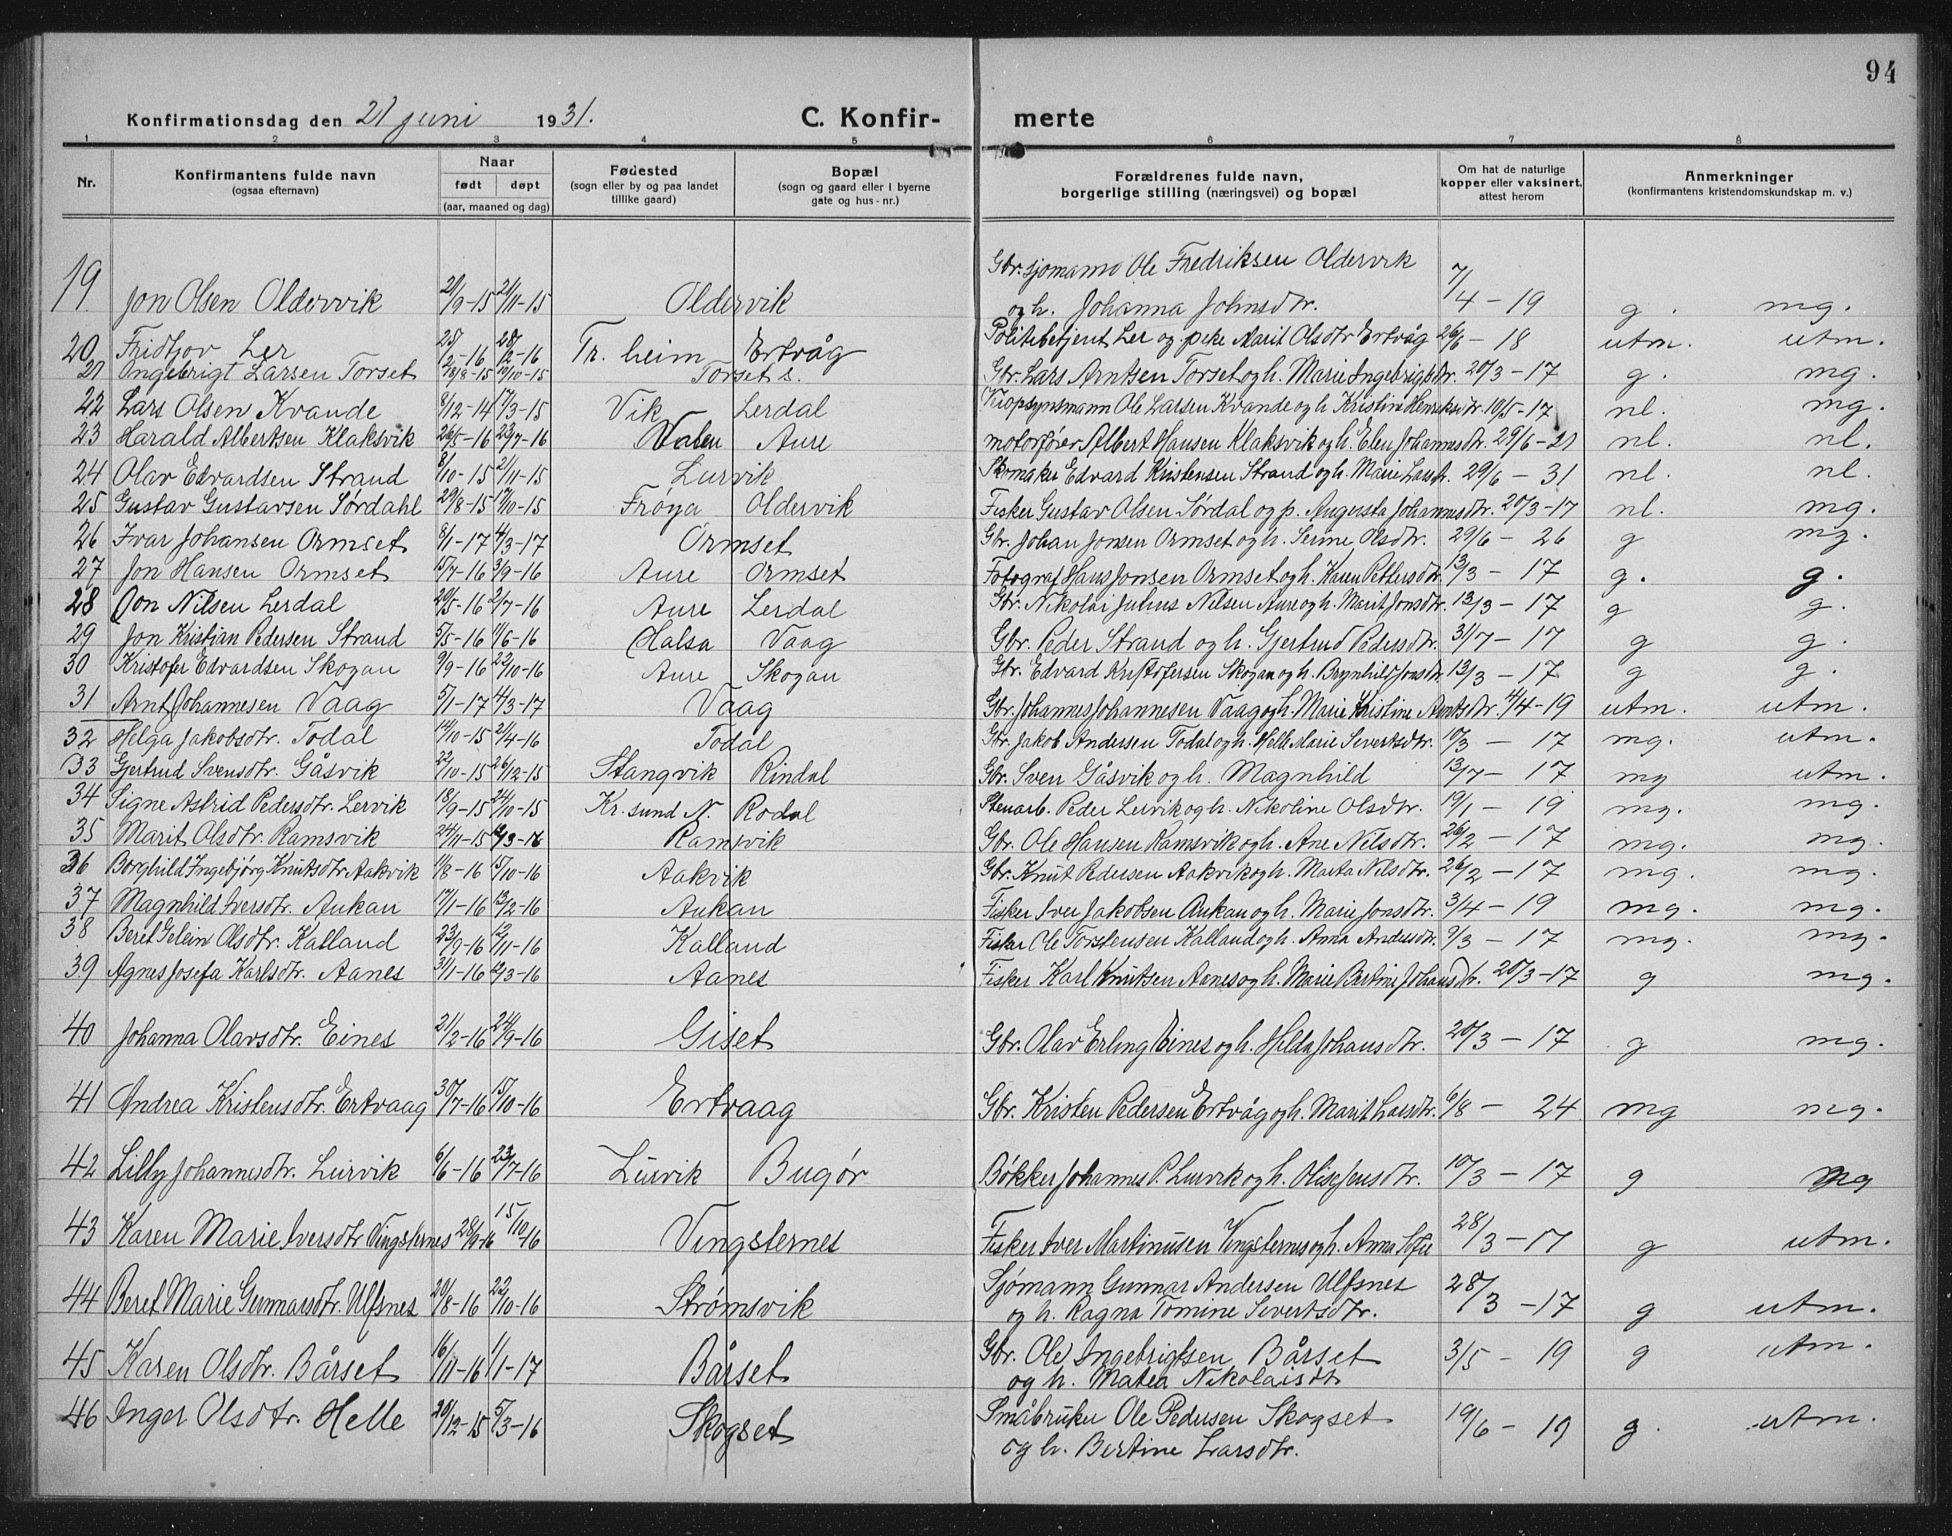 94
Konfirmationsdag den 21 juni 1931. C. Konfir- merte
1 2 3 4 5 6 7 8
Nr. Konfirmantens fulde navn (ogsaa efternavn) Naar født døpt (aar, maaned og dag) Fødested (sogn eller by og paa landet tillike gaard) Bopæl (sogn og gaard eller i byerne gate og hus-nr.) Forældrenes fulde navn, borgerlige stilling (næringsvei) og bopæl Om hat de naturlige kopper eller vaksinert, attest herom Anmerkninger (konfirmantens kristendomskundskap m. v.)
19. Jon Olsen Oldervik 21/9-15 21/11-15 Oldervik Gbr. sjømann Ole Fredriksen Oldervik og h. Johanna Johnsdtr. 7/4-19 g. mg.
20 Fridtjov Ler 28/12-16 Tr. heim Ertvåg Politibetjent Ler og pike Marit Olsdtr Ertvåg 26/6-18 utm. utm.
21 Ingebrigt Larsen Torset 28/8-15 10/10-15 Torset s. Gbr. Lars Arntsen Torset og h. Marie Ingebrigtsdtr. 20/3-17 g. mg.
22 Lars Olsen Kvande 8/12-14 17/3-15 Vik Lerdal Ole Larsen Kvande og h. Kristine Henriksdtr. 10/5-17 nl. mg.
23 Harald Albertsen Klaksvik 26/5-16 23/7-16 Valen Aure motorfører Albert Hansen Klaksvik og h. Elen Johannesdtr. 29/6-21 nl. nl.
24 Olav Edvardsen Strand 8/10-15 21/11-15 Lurvik Skomaker Edvard Kristensen Strand og h. Marie Larsdtr. 29/6-31 nl. nl.
25 Gustav Gustavsen Sørdahl 29/8-15 17/10-15 Frøya Oldervik Fisker Gustav Olsen Sørdal og p. Augusta Johannesdtr. 20/3-17 nl. mg.
26 Ivar Johansen Ormset 8/1-17 4/3-17 Ormset Gbr. Johan Jonsen Ormset og h. Serine Olsdtr. 29/6-26 g mg.
27 Jon Hansen Ormset 15/7-16 3/9-16 Aure Ormset Fotograf Hans Jonsen Ormset og h. Karen Pettersdtr. 13/3-17 g. g.
28 Jon Nilsen Lerdal 20/5-16 2/7-16 Aure Lerdal Gbr. Nikolai Julius Nilsen Aure og h. Marit Jonsdtr. 13/3-17 g g.
29 Jon Kristian Pedersen Strand 5/5-16 11/6-16 Halsa Vaag Gbr. Peder Strand og h. Gjertrud Pedersdtr. 31/7-17 g g.
30 Kristofer Edvardsen Skogan 9/9-16 22/10-16 Aure Skogan Gbr. Edvard Kristofersen Skogan og h. Brynhild Jonsdtr 13/3-17 g g.
31 Arnt Johannesen Vaag 5/1-17 4/3-17 Vaag Gbr. Johannes Johannesen Vaag og h. Marie Kristine Arntsdtr. 4/4-19 utm. utm.
32 Helga Jakobsdtr. Todal 14/10-15 2/4-16 Todal Gbr. Jakob Andersen Todal og h. Helle Marie Sivertsdtr. 10/3-17 mg. utm.
33 Gjertrud Svensdtr. Gåsvik 22/10-15 26/12-15 Stangvik Rindal Gbr. Sven Gåsvik og h. Magnhild 13/7-17 mg utm.
34 Signe Astrid Pedersdtr. Lervik 18/9-15 24/10-15 Kr. sund N. Rodal Stenarb. Peder Lervik og h. Nikoline Olsdtr. 19/1-19 mg. mg.
35 Marit Olsdtr. Ramsvik 24/11-15 12/3-16 Ramsvik Gbr. Ole Hansen Ramsvik og h. Ane Nilsdtr. 26/2-17 mg. mg.
36 Borghild Ingebjørg Knutsdtr. Aakvik 11/8-16 15/10-16 Aakvik Gbr. Knut Pedersen Aakvik og h. Marta Nilsdtr. 26/2-17 mg. mg.
37 Magnhild Iversdtr. Aukan 17/1-16 13/2-16 Aukan Fisker Iver Jakobsen Aukan og h. Marie Jonsdtr. 3/4-19 mg. mg.
38 Beret Gelein Olsdtr. Kalland 23/9-16 12/11-16 Kalland Fisker Ole Torstensen Kalland og h. Anna Andersdtr. 9/3-17 mg. mg.
39 Agnes Josefa Karlsdtr. Aanes 31/1-16 12/3-16 Aanes Fisker Karl Knutsen Aanes og h. Marie Bertine Johansdtr. 20/3-17 g mg.
40 Johanna Olavsdtr. Eines 21/2-16 24/9-16 Giset Gbr. Olav Erling Eines og h. Hilda Johansdtr. 20/3-17 g mg.
41 Andrea Kristensdtr. Ertvaag 30/7-16 15/10-16 Ertvaag Gbr. Kristen Pedersen Ertvåg og h. Marit Larsdtr. 6/8-24 mg mg.
42 Lilly Johannesdtr. Lurvik 6/6-16 23/7-16 Lurvik Bugør Bøkker Johannes P. Lurvik og h. Olise Jensdtr. 10/3-17 g mg
43 Karen Marie Iversdtr Vingsternes 28/9-16 15/10-16 Vingsternes Fisker Iver Martinusen Vingsternes og h. Anna Sofie 28/3-17 g utm.
44 Beret Marie Gunnarsdtr. Ulfsnes 20/8-16 22/10-16 Strømsvik Sjømann Gunnar Andersen Ulfsnes og h. Ragna Tomine Sivertsdtr. 28/3-17 g utm.
45 Karen Olsdtr. Bårset 16/11-16 1/1-17 Bårset Gbr. Ole Ingebrigtsen Bårset og h. Matea Nikolaisdt 3/5-19 g utm.
46 Inger Olsdtr. Helle 20/12-15 5/3-16 Skogset Småbruker Ole Pedersen Skogset og h. Bertine Larsdtr. 19/6-19 g. utm.